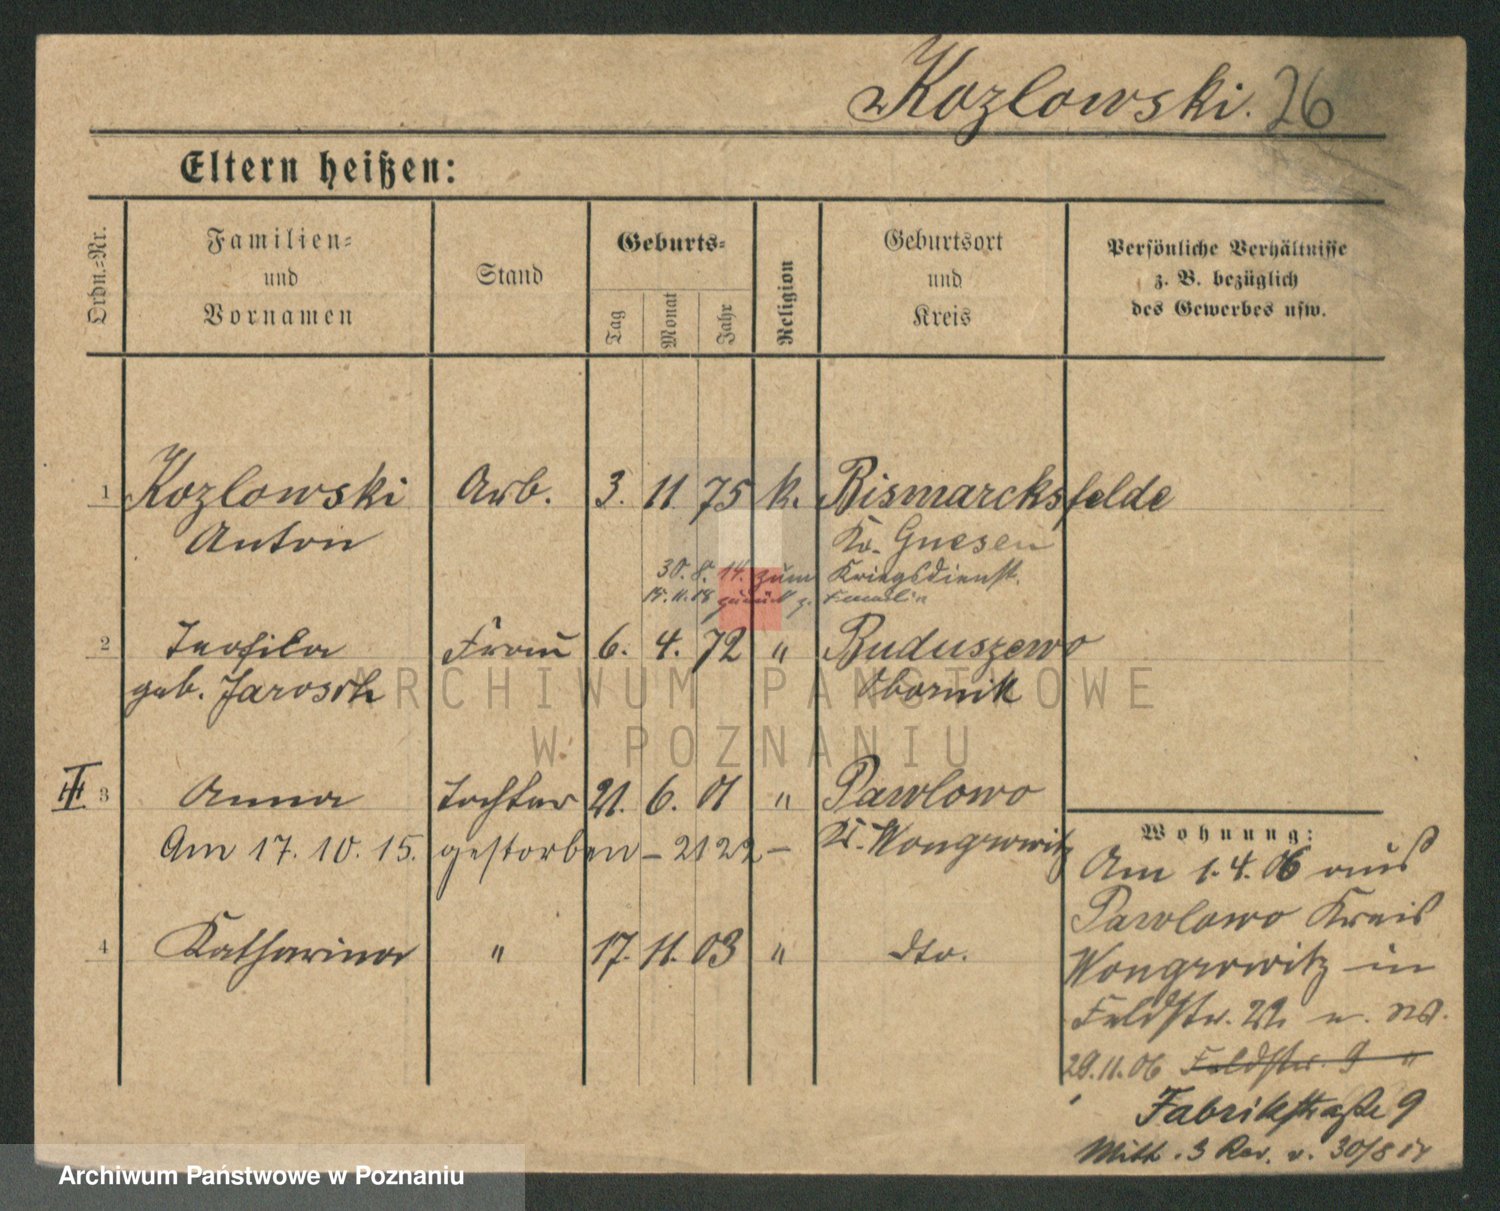 Kozlowski. 26
Eltern heißen:
Ordn.-Nr.
Familien-
und
Vornamen
Stand
Geburts-
Tag
Monat
Jahr
Religion
Geburtsort
und
Kreis
Persönliche Verhältnisse
z. B. bezüglich
des Gewerbes usw.
1 Kozlowski Arb. 3. 11. 75 k. Bismarcksfelde
Anton Kr. Gnesen
30. 8. 14. zum Kriegsdienst.
18. 11. 18 zurück z. Familie
2 Teofila Frau 6. 4. 72 " Buduszewo
geb. Jarosch Obornik
III 3 Anna Tochter 21. 6. 01 " Pawlowo
Am 17. 10. 15. gestorben – 2122 – Kr. Wongrowitz
4 Katharina " 17. 11. 03 " dto.
Wohnung:
Am 1. 4. 06 aus
Pawlowo Kreis
Wongrowitz in
Feldstr. 22
29. 11. 06 Feldstr. 9 "
Fabrikstraße 9
3 Rev. v. 30/8
ARCHIWUM PAŃSTWOWE
W POZNANIU
Archiwum Państwowe w Poznaniu